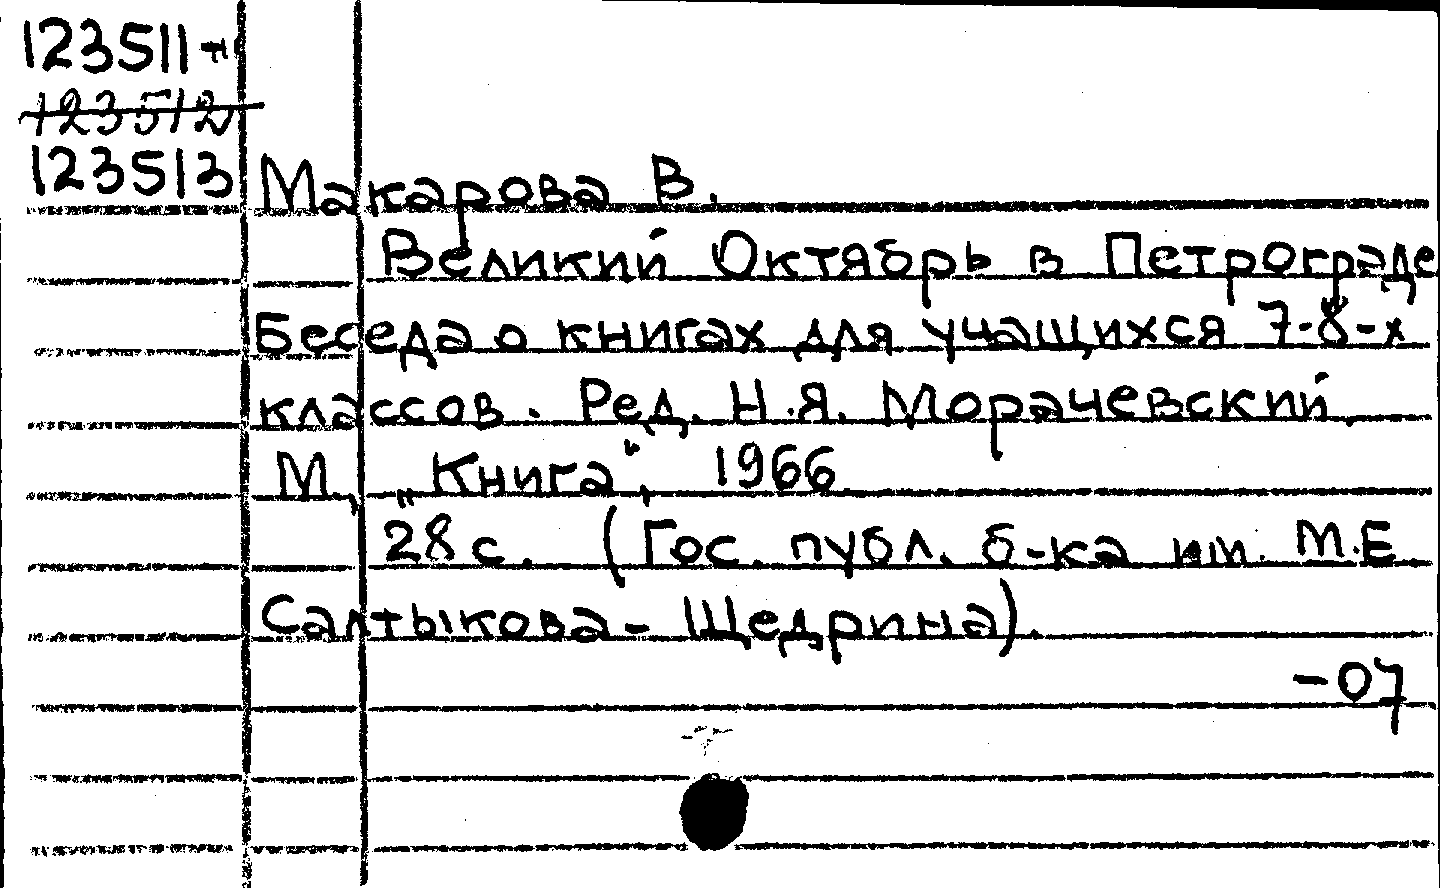 123511-н
123512
123513
Макарова В.
Великий Октябрь в Петрограде
Беседа о книгах для учащихся 7-8-х
классов. Ред. Н.Я. Морачевский.
М., „Книга", 1966
28 с. (Гос. публ. б-ка им. М.Е
Салтыкова-Щедрина).
-07